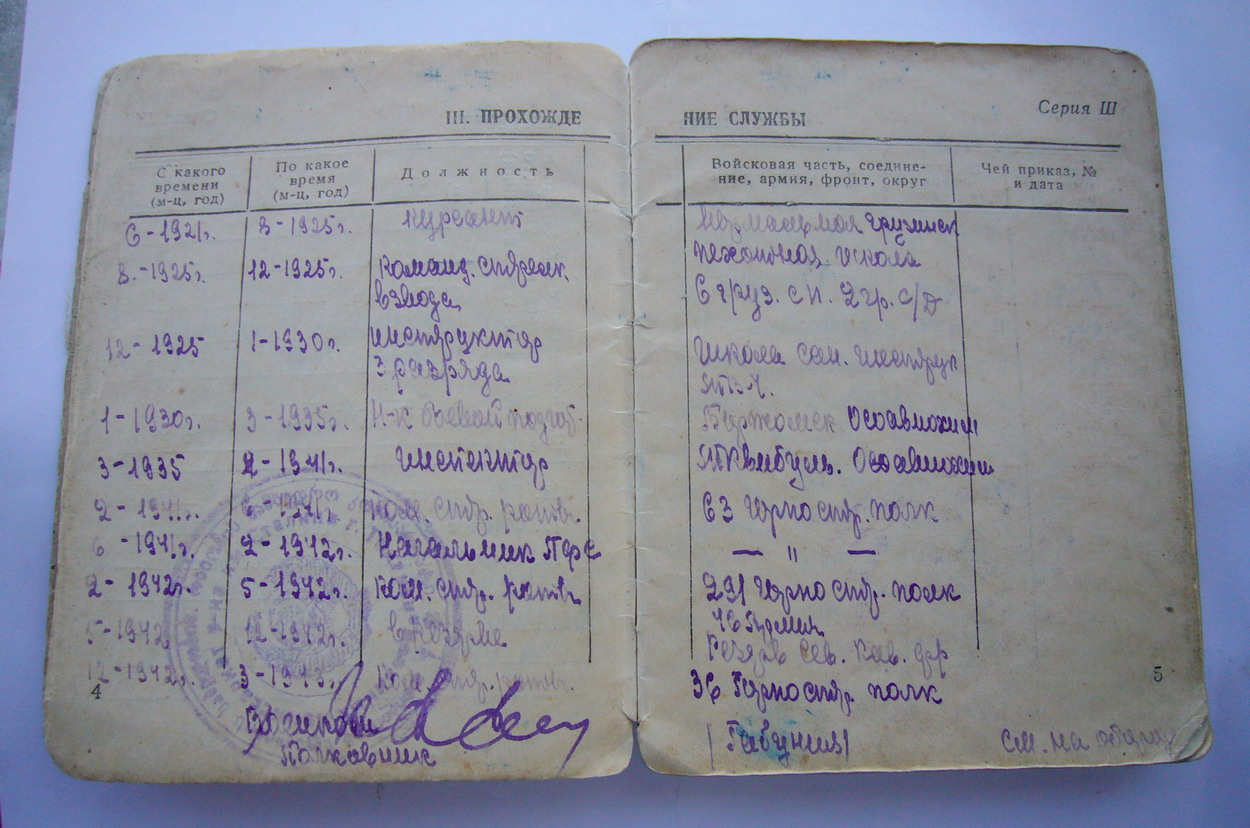 III. ПРОХОЖДЕ
НИЕ СЛУЖБЫ
Серия Ш
С какого времени (м-ц, год)
По какое время (м-ц, год)
Должность
Войсковая часть, соедине-
ние, армия, фронт, округ
Чей приказ, №
и дата
6-1921г. 8-1925г. Курсант
пехотная школа
8.-1925г. 12-1925г.
взвода
6 груз. сп. 2 гр. с/д
12-1925 1-1930г. инструктор
3 разряда
Школа
1-1930г. 3-1935г. Н-к боевой
Осоавиохим
3-1935 2-1941г. инспектор
Тквибуль. Осоавиохим
2-1941г. 6-1941г. Ком. стр. роты.
63 Горно стр. полк
6-1941г. 2-1942г. Начальник
— " —
2-1942г. 5-1942г. Ком. стр. роты
291 Горно стр. полк
46 Армия
5-1942 12-1942г. в резерве
Резерв Сев. Кав. фр
12-1942г. 3-1943г. Ком. стр. роты.
36 Горно стр. полк
4
5
Полковник
/Габуния/
См. на обороте